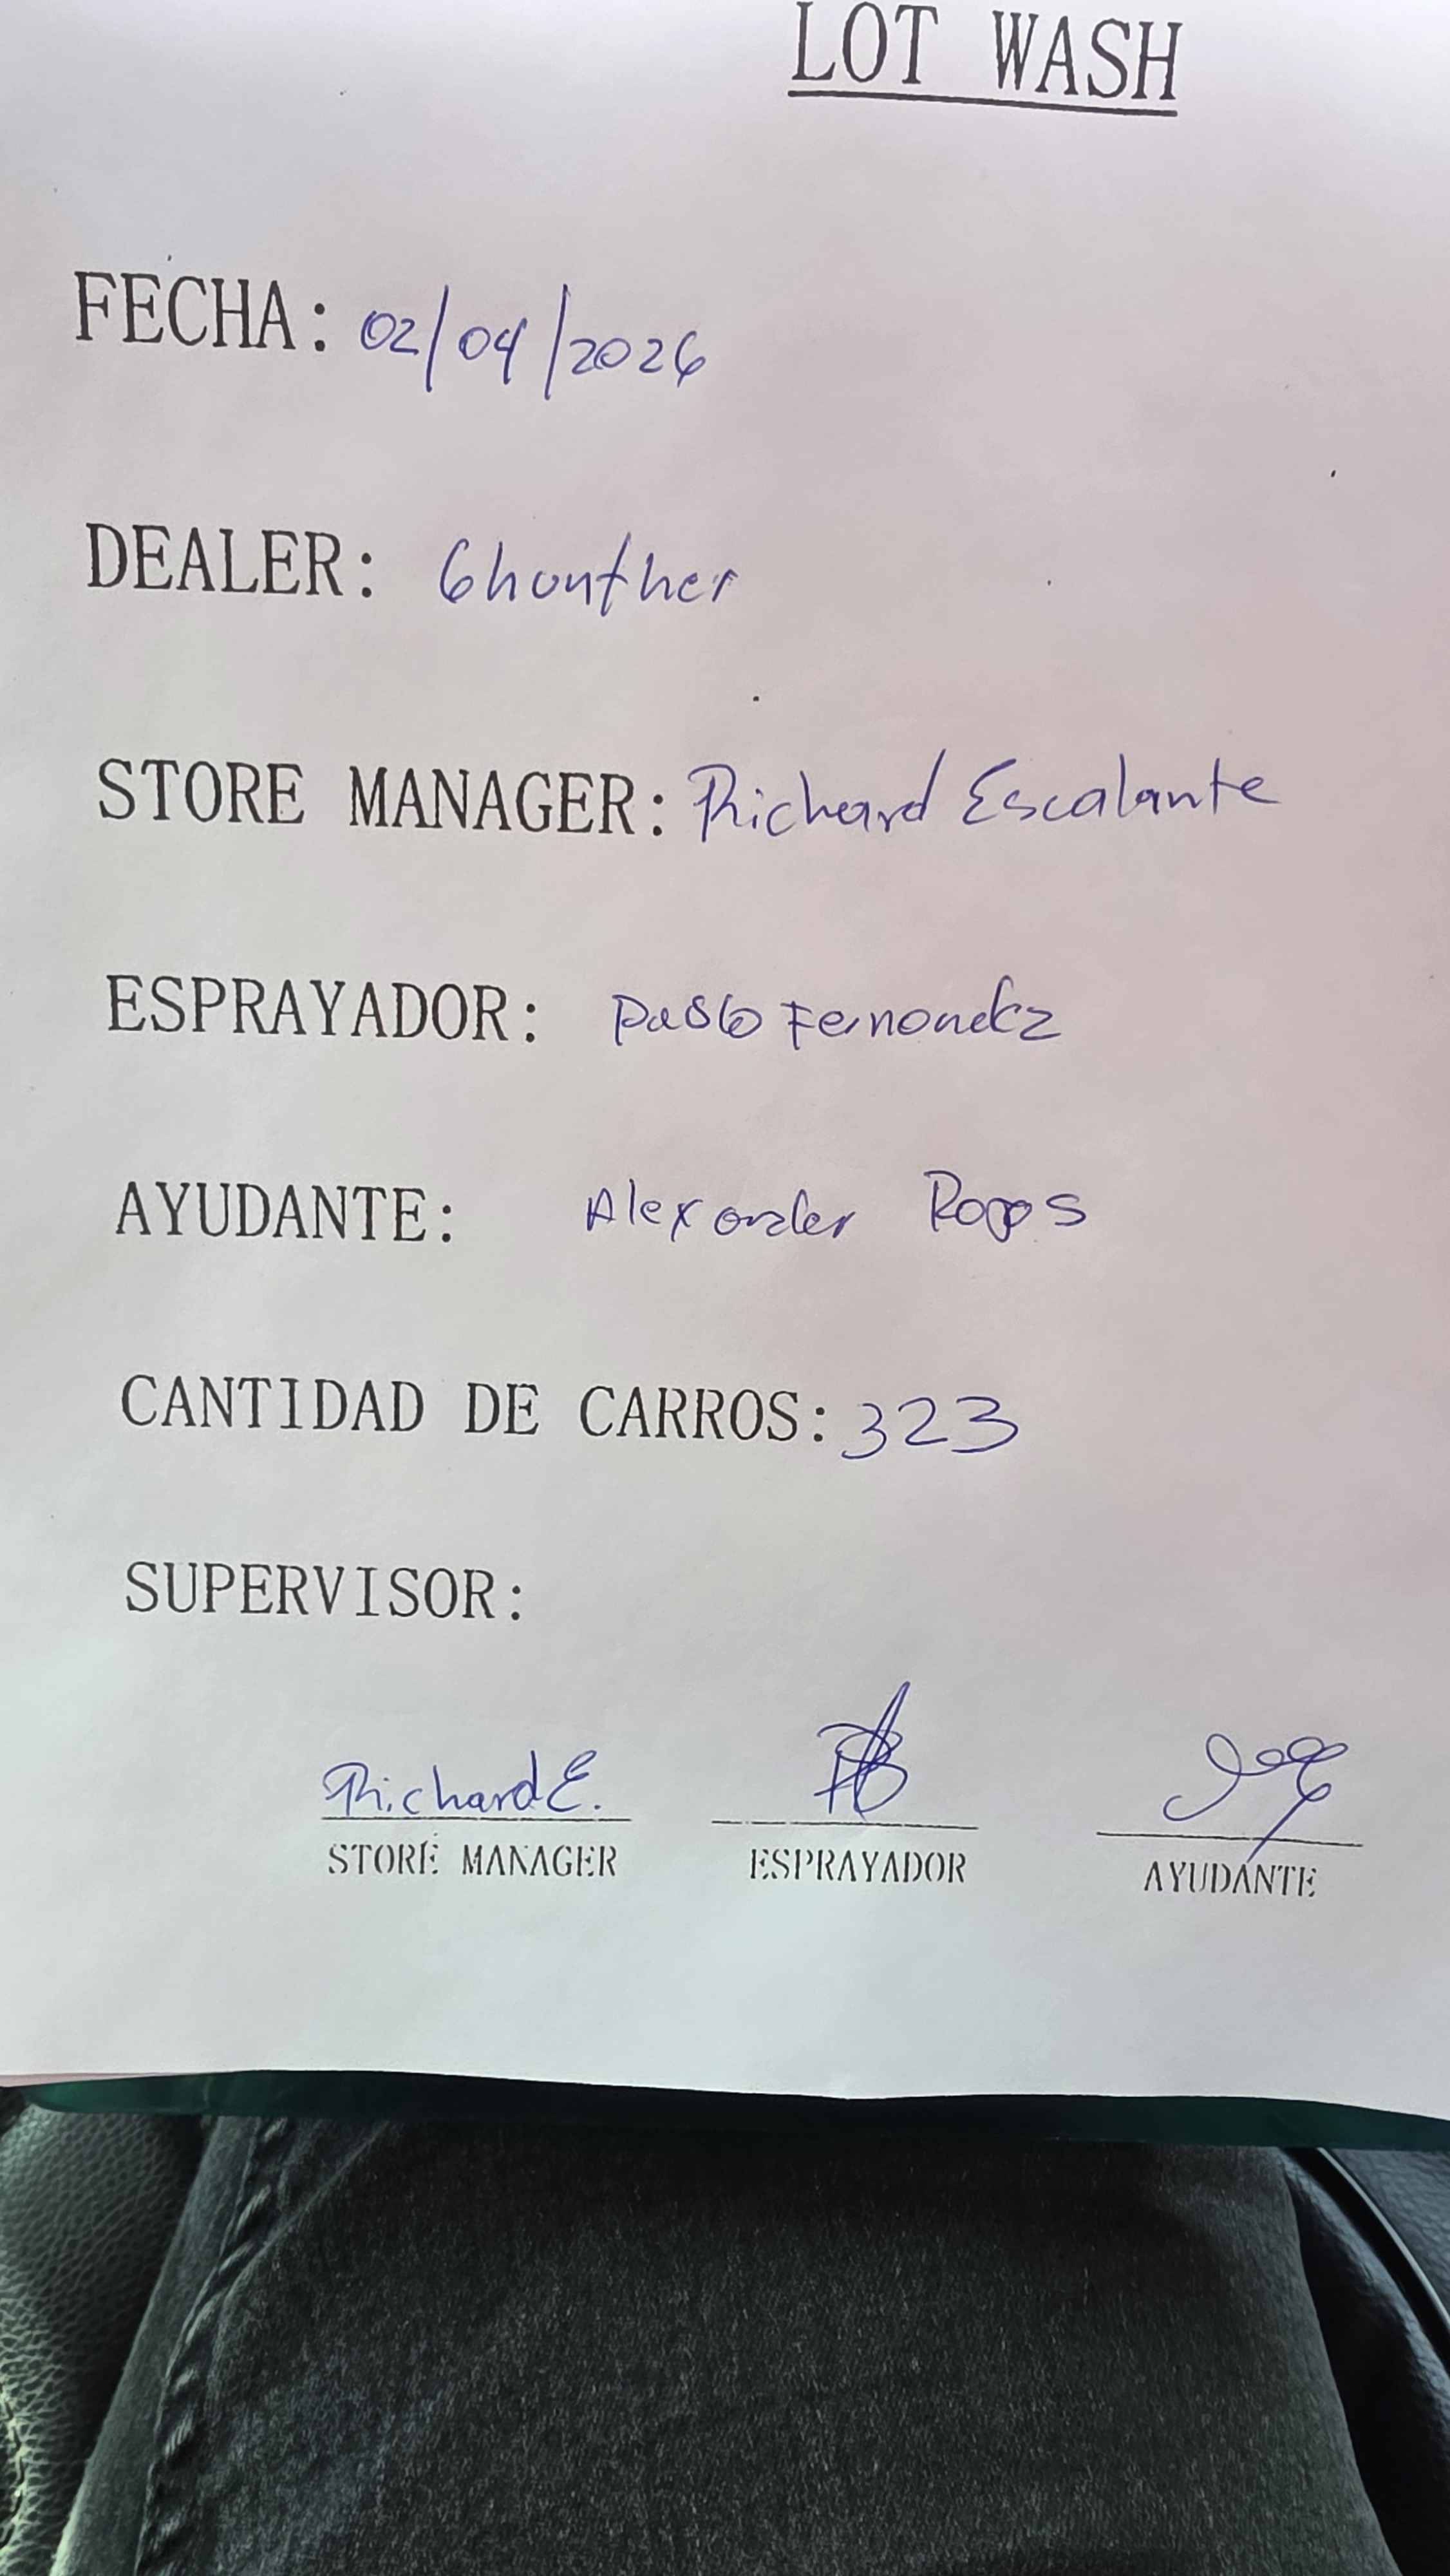 LOT WASH
FECHA: 02/04/2026
DEALER: Ghounther
STORE MANAGER: Richard Escalante
ESPRAYADOR: Pablo Fernandez
AYUDANTE: Alexander
CANTIDAD DE CARROS: 323
SUPERVISOR:
Richard E.
STORE MANAGER ESPRAYADOR AYUDANTE